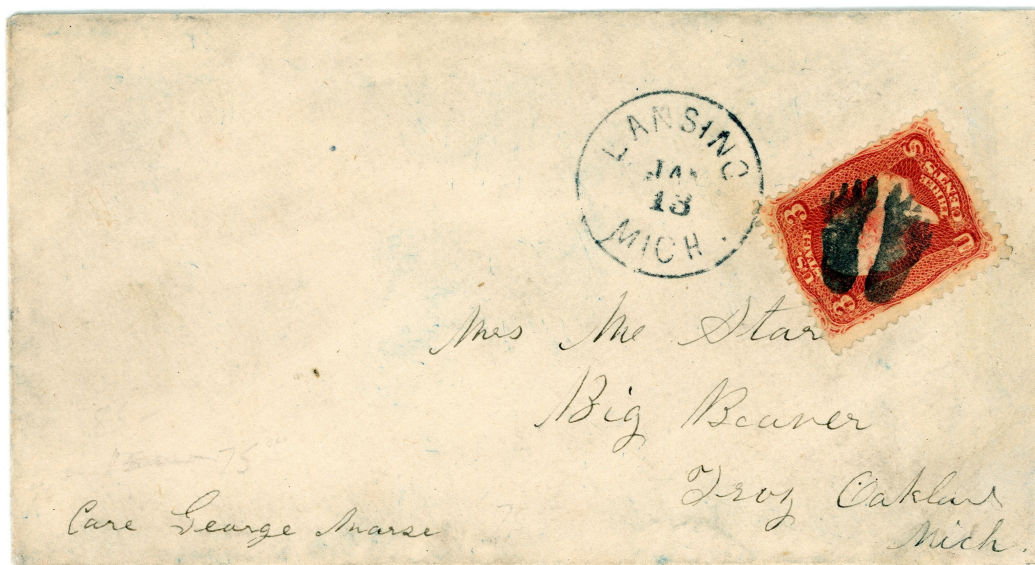 LANSING
JAN
13
MICH.
U.S. POSTAGE
THREE CENTS
3
3
U S
Mrs Me Starr
Big Beaver
Troy Oakland
Mich.
75
Care George Marse